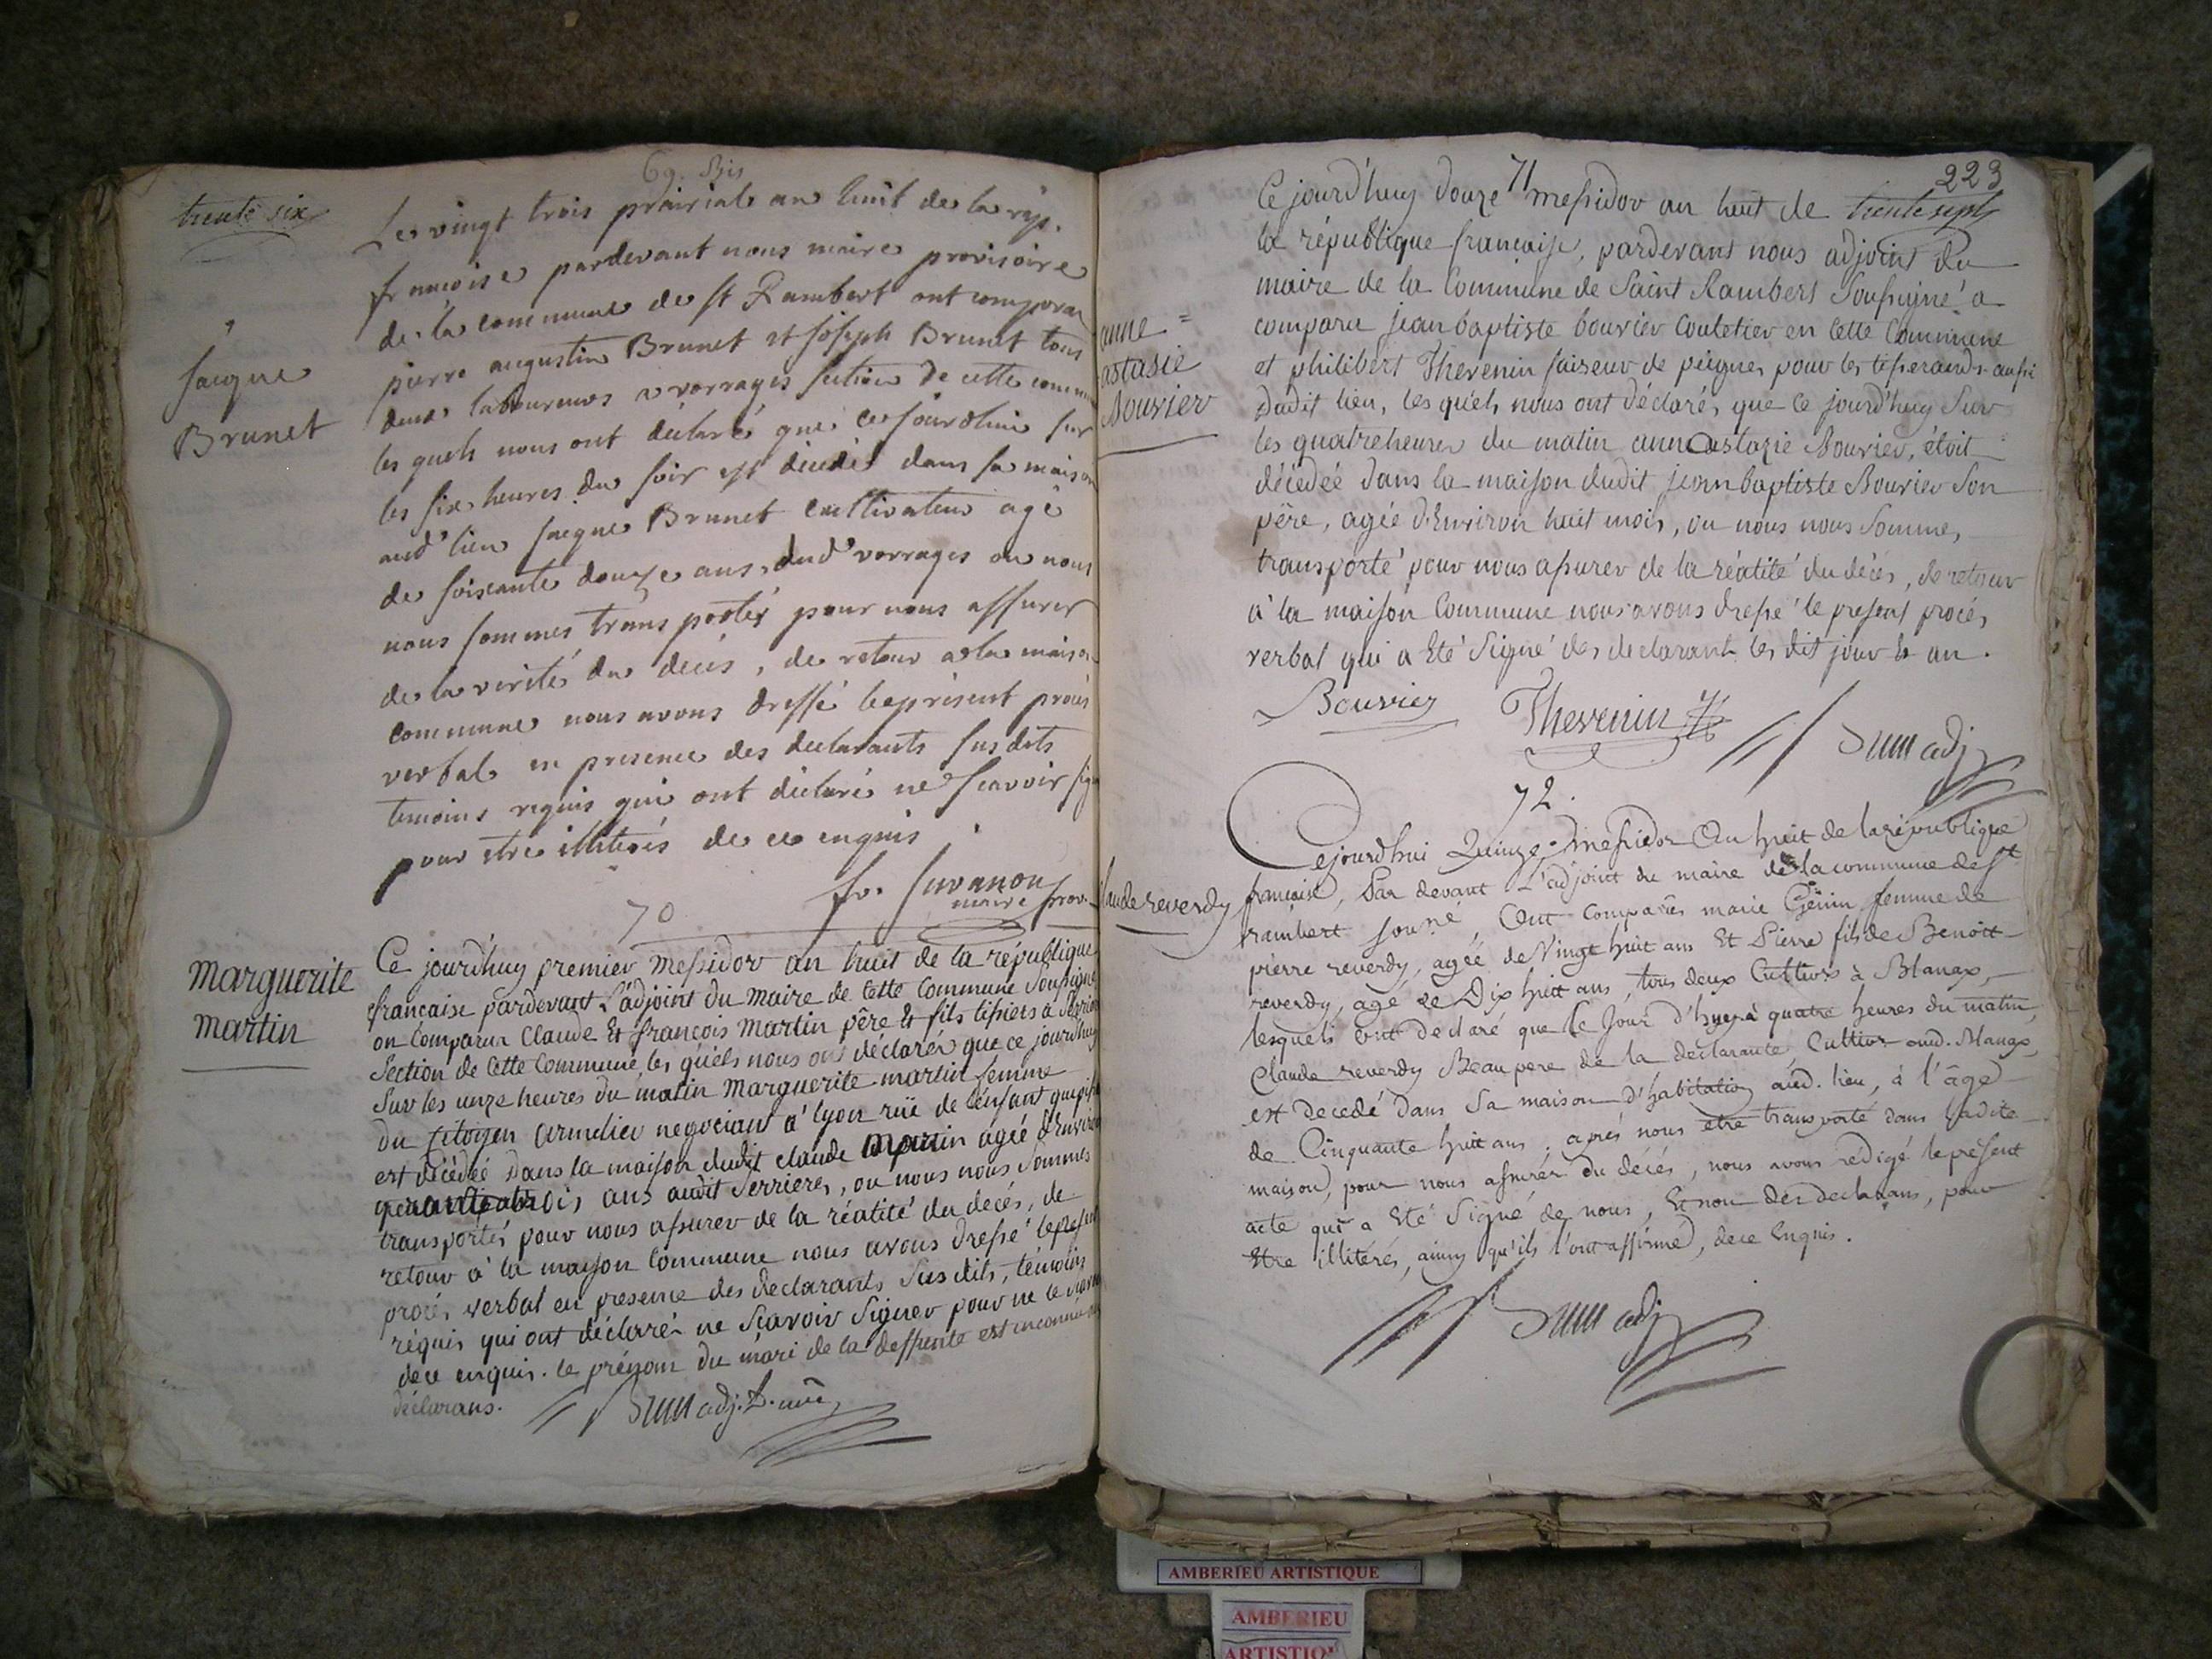 69. Bis
trente six
Le vingt trois prairial an huit de la rép.
francoise pardevant nous maire provisoire
de la commune de st Rambert ont comparu
pierre augustin Brunet et joseph Brunet tous
deux laboureurs a vorrages section de cette commune
les quels nous ont déclaré que ce jourdhui sur
les six heures du soir est décédé dans sa maison
aud' lieu jacque Brunet cultivateur agé
de soixante douze ans, dud' vorrages ou nous
nous sommes transportés pour nous assurer
de la vérité du décès, de retour a la maison
commune nous avons dressé le présent procès
verbal en presence des declarants susdits
temoins requis qui ont déclaré ne scavoir sig
pour etre illiterés de ce enquis
jacque
Brunet
fr. juvanon
maire prov.
70
Marguerite
martin
Ce jourd'huy premier messidor an huit de la république
francaise pardevant L'adjoint du maire de cette commune soussigné
on comparu claude Et francois martin père & fils tissiers a serrieres
section de cette commune, les quels nous on déclarés que ce jourdhuy
sur les unze heures du matin marguerite martin femme
du citoyen armelier negociant à lyon rüe de l'enfant qui pisse
est décédée dans la maison dudit claude martin agée d'environ
ans audit serrieres, ou nous nous sommes
transportés pour nous assurer de la réalité du decés, de
retour à la maison commune nous avons dressé le présent
procés verbal en presence des declarants susdits, témoins
réquis qui ont déclarés ne scavoir signer pour ne le
de ce enquis. le prénom du mari de la deffunte est inconnu
déclarans.
adj.
223
71
trente sept
Ce jourd'huy douze messidor an huit de
la république francaise, pardevant nous adjoint du
maire de la commune de Saint Rambert soussigné a
comparu jean baptiste bouvier couletier en cette commune
et philibert Thevenin faiseur de peignes pour les tisserands aussi
dudit lieu, les quels nous ont déclarés que ce jourd'huy sur
les quatre heures du matin anne astazie Bouvier, étoit
décédée dans la maison dudit jean baptiste Bouvier son
père, agée d'Environ huit mois, ou nous nous sommes
transporté pour nous assurer de la réalité du décès, de retour
à la maison commune nous avons dressé le present procés
verbal qui a Eté signé des declarant les dit jour & an.
anne =
astasie
Bouvier
Bouvier Thevenin
adj
72.
Cejourdhui Quinze messidor An huit de la république
francaise, Par devant L'adjoint du maire de la commune de st
rambert sousné, Ont comparûs marie Génin femme de
pierre reverdy, agée de Vingt huit ans Et Pierre fils de Benoît
reverdy, agé de Dix huit ans, tous deux Cultivrs à Blanax,
lesquels ont declaré que ce Jour d'huy à quatre heures du matin,
Claude reverdy Beau pere de la declarante, Cultivr aud. Blanax,
est decedé dans sa maison d'habitation aud. lieu, à l'âge
de Cinquante huit ans, aprés nous etre transporté dans ladite
maison, pour nous assurer du décés, nous avons rédigé le présent
acte qui a Eté signé de nous, Et non des declarans, pour
Etre illitérés, ainsy qu'ils l'ont affirmé, de ce Enquis.
claude reverdy
adj
AMBERIEU ARTISTIQUE
AMBERIEU
ARTISTIQU